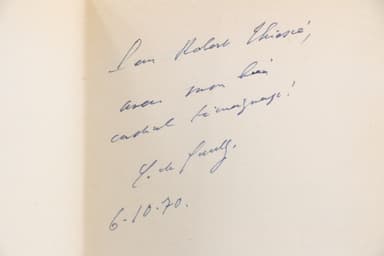 Pour Robert Thiessé,
avec mon bien
cordial témoignage !
C. de Gaulle.
6-10-70.